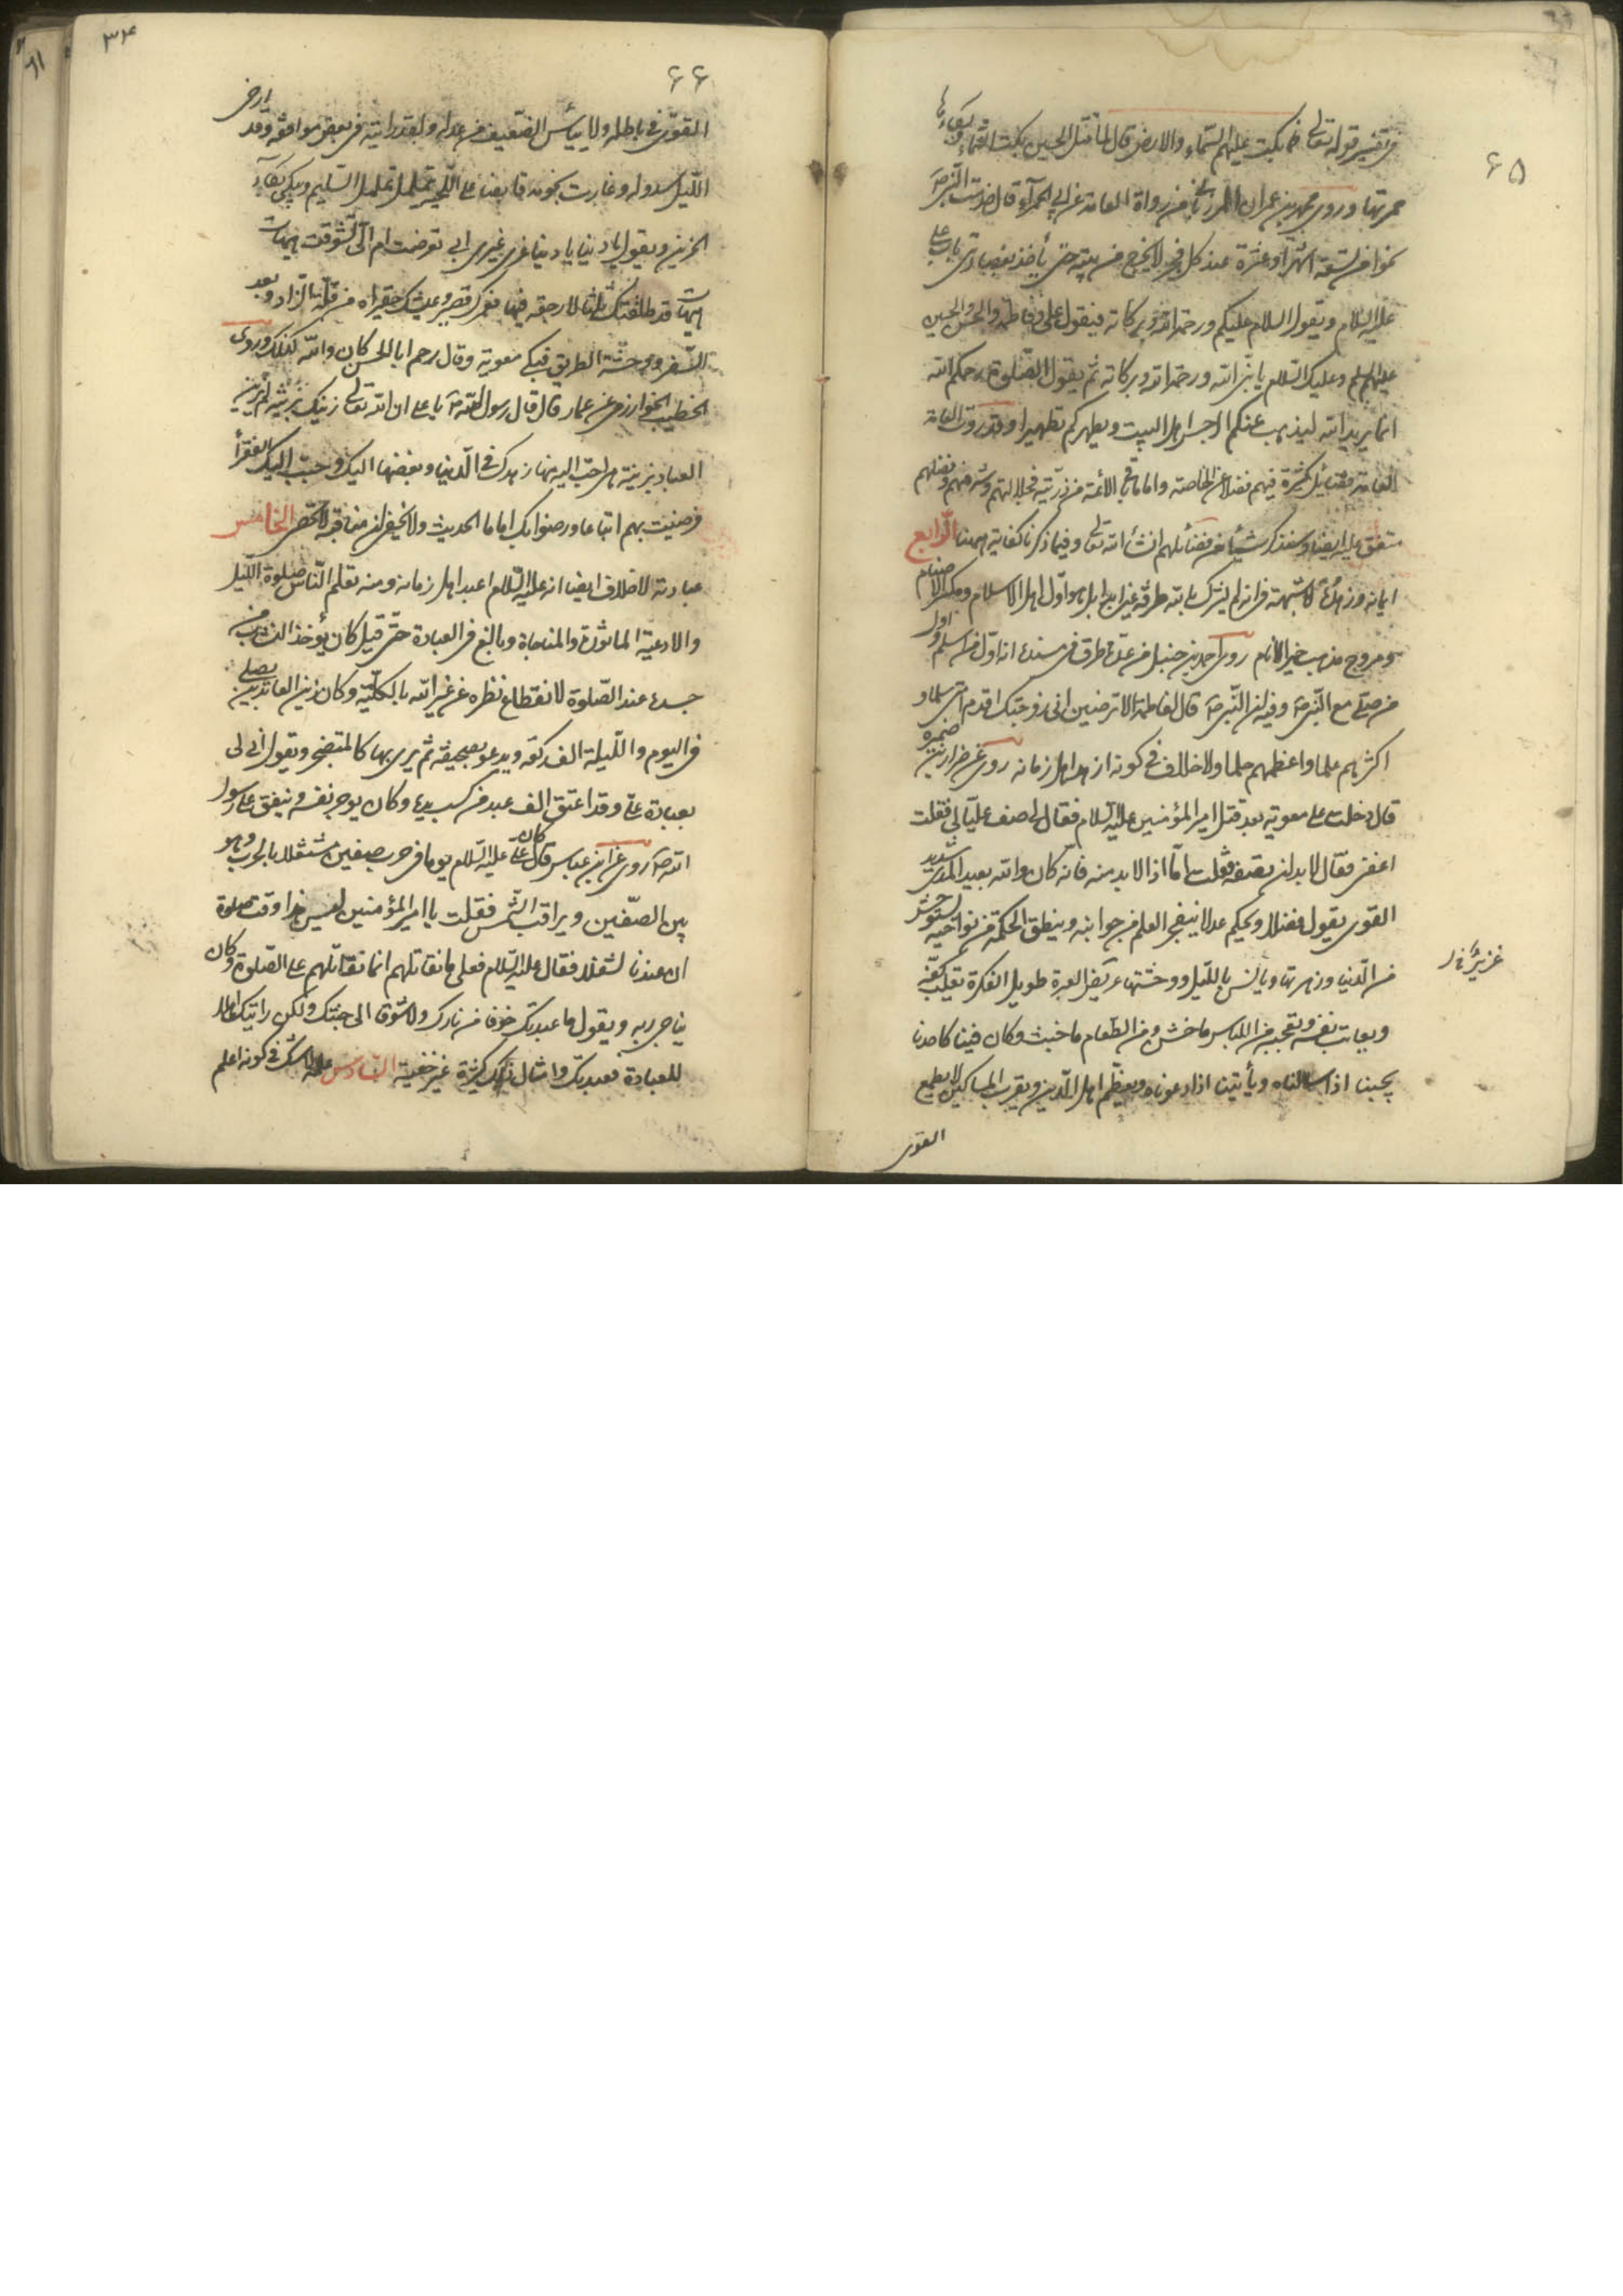 ٦٥
فی تفسیر قوله تعالی فما بکت علیهم السماء والارض قال لما قتل الحسین بکت السماء و بکاءها
حمرتها وروی محمد بن عمران المرزبانی من رواة العامة عن ابی الحمراء قال خدمت النبی ص
نحوا من تسعة اشهر او عشرة عند کل فجر لا یخرج من بیته حتی یأخذ بعضادتی باب علی
علیه السلام ویقول السلام علیکم ورحمة الله وبرکاته فیقول علی وفاطمة والحسن والحسین
علیهم السلم وعلیک السلام یا نبی الله ورحمة الله وبرکاته ثم یقول الصلوة رحمکم الله
انما یرید الله لیذهب عنکم الرجس اهل البیت ویطهرکم تطهیرا وقد روت العامة
فضائل کثیرة فیهم فضلا عن الخاصة واما باقی الائمة من ذریته فجلالتهم وشرفهم وفضلهم
متفق علیه ایضا وسنذکر شیأ من فضائلهم انشأ الله تعالی وفیما ذکرنا کفایة ههنا الرابع
ایمانه وزهده لا شبهة فی انه لم یشرک بالله طرفة عین ابدا بل هو اول اهل الاسلام ومکسر الاصنام
ومروج مذهب خیر الانام روی احمد بن حنبل من عدة طرق فی مسنده انه اول من اسلم و اول
من صلی مع النبی ص وفیه ان النبی ص قال لفاطمة الا ترضین انی زوجتک اقدم امتی سلما و
اکثرهم علما واعظمهم حلما ولا خلاف فی کونه ازهد اهل زمانه روی عن ضرار بن ضمرة
قال دخلت علی معویة بعد قتل امیر المؤمنین علیه السلام فقال لی صف علیا لی فقلت
اعفنی فقال لا بد ان تصفه فقلت اما اذا لا بد منه فانه کان والله بعید المدی شدید
القوی یقول فضلا ویحکم عدلا ینفجر العلم من جوانبه وینطق الحکمة من نواحیه یستوحش
من الدنیا وزهرتها ویأنس باللیل ووحشتها غزیر العبرة طویل الفکرة یقلب کفه
ویعاتب نفسه ویعجبه من اللباس ما خشن ومن الطعام ما خبث وکان فینا کاحدنا
یجیبنا اذا سالناه ویأتینا اذا دعوناه ویعظم اهل الدین ویقرب المساکین لا یطمع
القوی
٣٤
٦٦
القوی فی باطله ولا ییأس الضعیف من عدله ولقد رایته فی بعض مواقفه وقد ارخی
اللیل سدوله وغارت نجومه قابضا علی اللحیة یتململ تململ السلیم ویبکی بکاء
الحزین ویقول یا دنیا یا دنیا غری غیری ابی تعرضت ام الی تشوقت هیهات
هیهات قد طلقتک ثلثا لا رجعة فیها فعمرک قصیر وعیشک حقیر اه من قلة الزاد وبعد
السفر ووحشة الطریق فبکی معویة وقال رحم ابا الحسن کان والله کذلک وروی
الخطیب الخوارزمی عن عمار قال قال رسول الله ص یا علی ان الله تعالی زینک بزینة لم یزین
العباد بزینة هی احب الیه منها زهدک فی الدنیا وبغضها الیک وحبب الیک الفقرأ
فرضیت بهم اتباعا ورضوا بک اماما الحدیث ولا یخفی ان مناقبه لا تحصی الخامس
عبادته لا خلاف ایضا انه علیه السلام اعبد اهل زمانه ومنه تعلم الناس صلوة اللیل
والادعیة الماثورة والمناجاة وبالغ فی العبادة حتی قیل کان یؤخذ النشاب من
جسده عند الصلوة لانقطاع نظره عن غیر الله بالکلیة وکان زین العابدین یصلی
فی الیوم واللیلة الف رکعة ویدعو بصحیفة ثم یرمی بها کالمتضجر ویقول انی لی
بعبادة علی وقد اعتق الف عبد من کسب یده وکان یوجر نفسه وینفق علی رسول
الله ص روی عن ابن عباس قال کان علی علیه السلام یوما فی حرب صفین مشتغلا بالحرب وهو
بین الصفین ویراقب الشمس فقلت یا امیر المؤمنین لیس هذا وقت صلوة
ان عندنا لشغلا فقال علیه السلام فعلی ما نقاتلهم انما نقاتلهم علی الصلوة وکان
یناجی ربه ویقول ما عبدتک خوفا من نارک ولا شوقا الی جنتک ولکن رایتک اهلا
للعبادة فعبدتک وامثال ذلک کثیرة غیر خفیة السادس علمه لا شک فی کونه اعلم